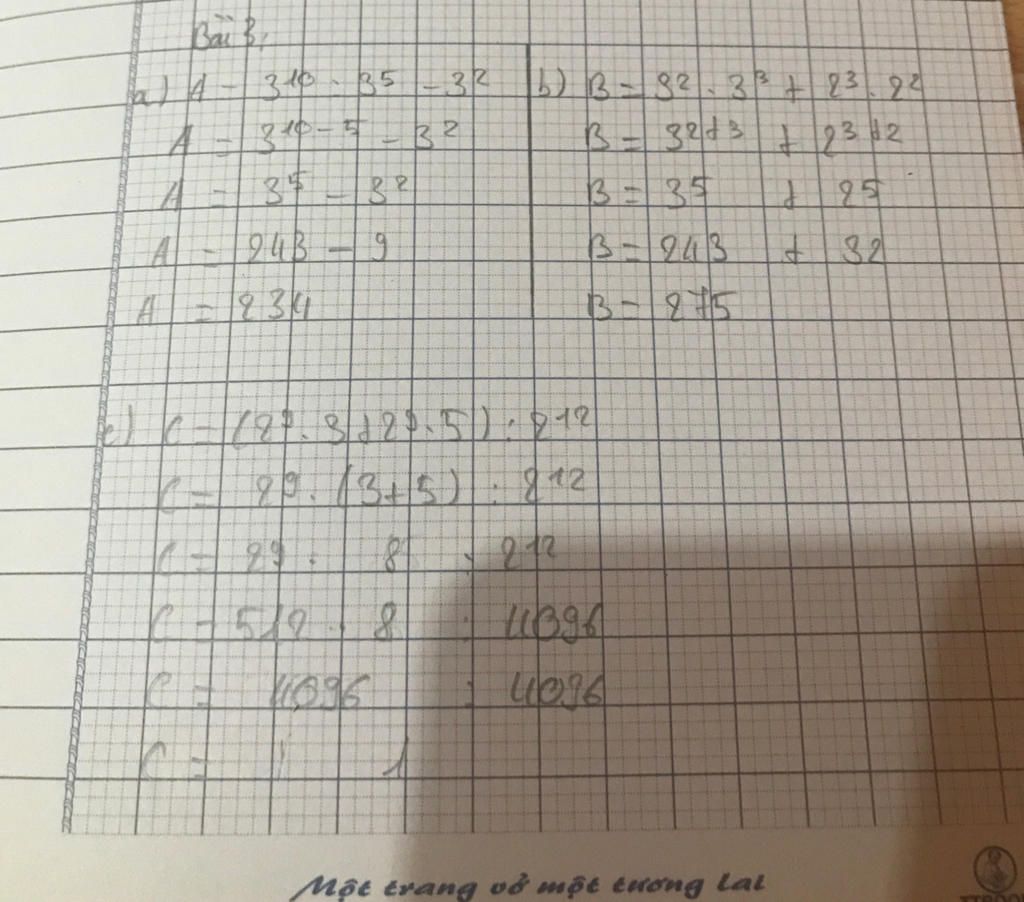 Bài 3,
a) A = 3¹⁰ : 3⁵ - 3²
A = 3¹⁰⁻⁵ - 3²
A = 3⁵ - 3²
A = 243 - 9
A = 234
b) B = 3² . 3³ + 2³ . 2²
B = 3²⁺³ + 2³⁺²
B = 3⁵ + 2⁵
B = 243 + 32
B = 275
c) C = (2⁹ . 3 + 2⁹ . 5) : 2¹²
C = 2⁹ . (3+5) : 2¹²
C = 2⁹ . 8 : 2¹²
C = 512 . 8 : 4096
C = 4096 : 4096
C = 1
Một trang vở một tương lai